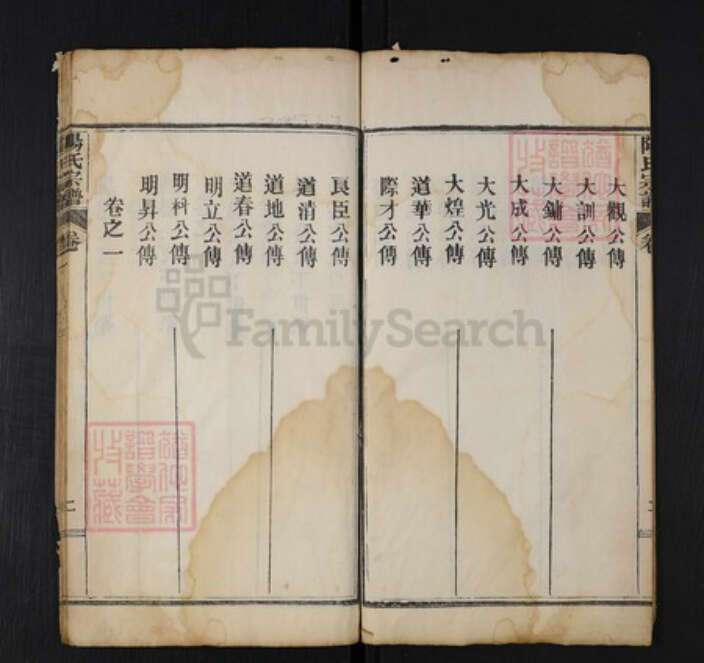 大觀公傳
大訓公傳
大鏞公傳
大成公傳
大光公傳
大煌公傳
道華公傳
際才公傳
良臣公傳
道清公傳
道地公傳
道春公傳
明立公傳
明科公傳
明昇公傳
卷之一
氏宗譜
卷一
二
FamilySearch